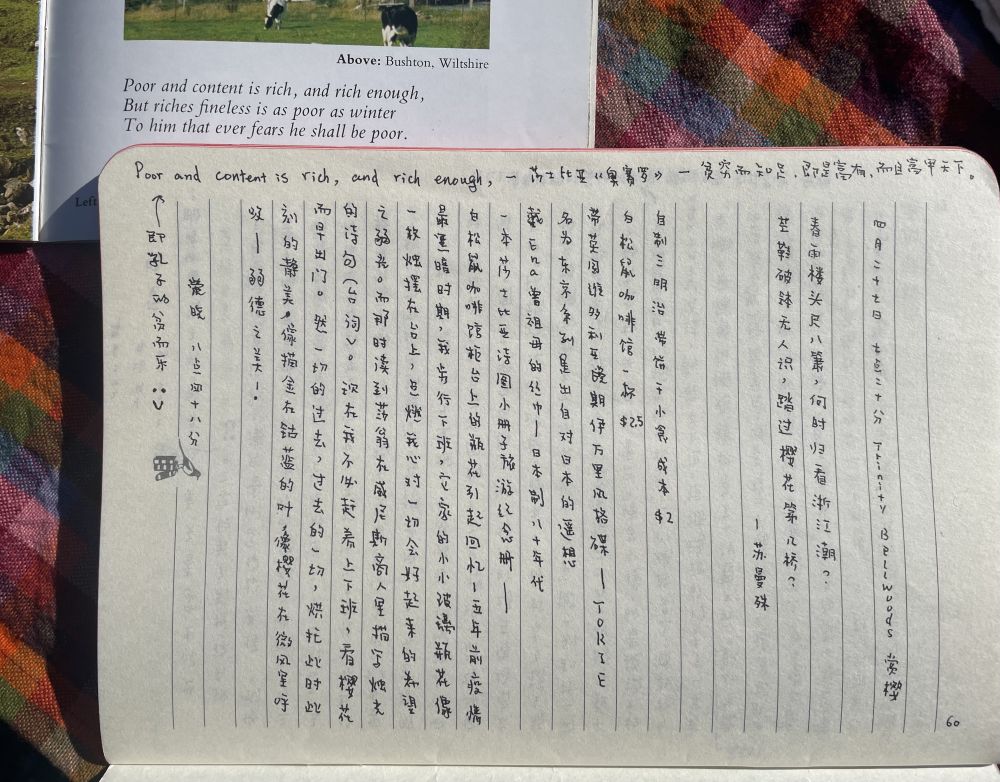 Above: Bushton, Wiltshire
Poor and content is rich, and rich enough,
But riches fineless is as poor as winter
To him that ever fears he shall be poor.
Left
Poor and content is rich, and rich enough, — 莎士比亚《奥赛罗》 — 贫穷而知足,即是富有,而且富甲天下。
四月二十七日 七点二十分 Trinity Bellwoods 赏樱
春雨楼头尺八箫,何时归看浙江潮?
芒鞋破钵无人识,踏过樱花第几桥?
— 苏曼殊
自制三明治 带饼干小食 成本 $2
白松鼠咖啡馆一杯 $2.5
带英国维多利亚晚期伊万里风格碟 — TOKIO
名为东京系列是出自对日本的遥想
戴Ena曾祖母的丝巾 — 日本制 八十年代
一本莎士比亚诗图小册子旅游纪念册 —
白松鼠咖啡馆柜台上的瓶花引起回忆 — 五年前疫情
最黑暗时期,我步行下班,它家的小小玻璃瓶花像
一枚烛摆在台上,点燃我心对一切会好起来的希望
之弱光。而那时读到莎翁在威尼斯商人里描写烛光
的诗句(台词)。现在我不必赶着上下班,看樱花
而早出门。然一切的过去,过去的一切,烘托此时此
刻的静美,像描金在钴蓝的叶,像樱花在微风里呼
吸 — 弱德之美!
晨晓 八点四十八分
↑ 即孔子的贫而乐 :v
60